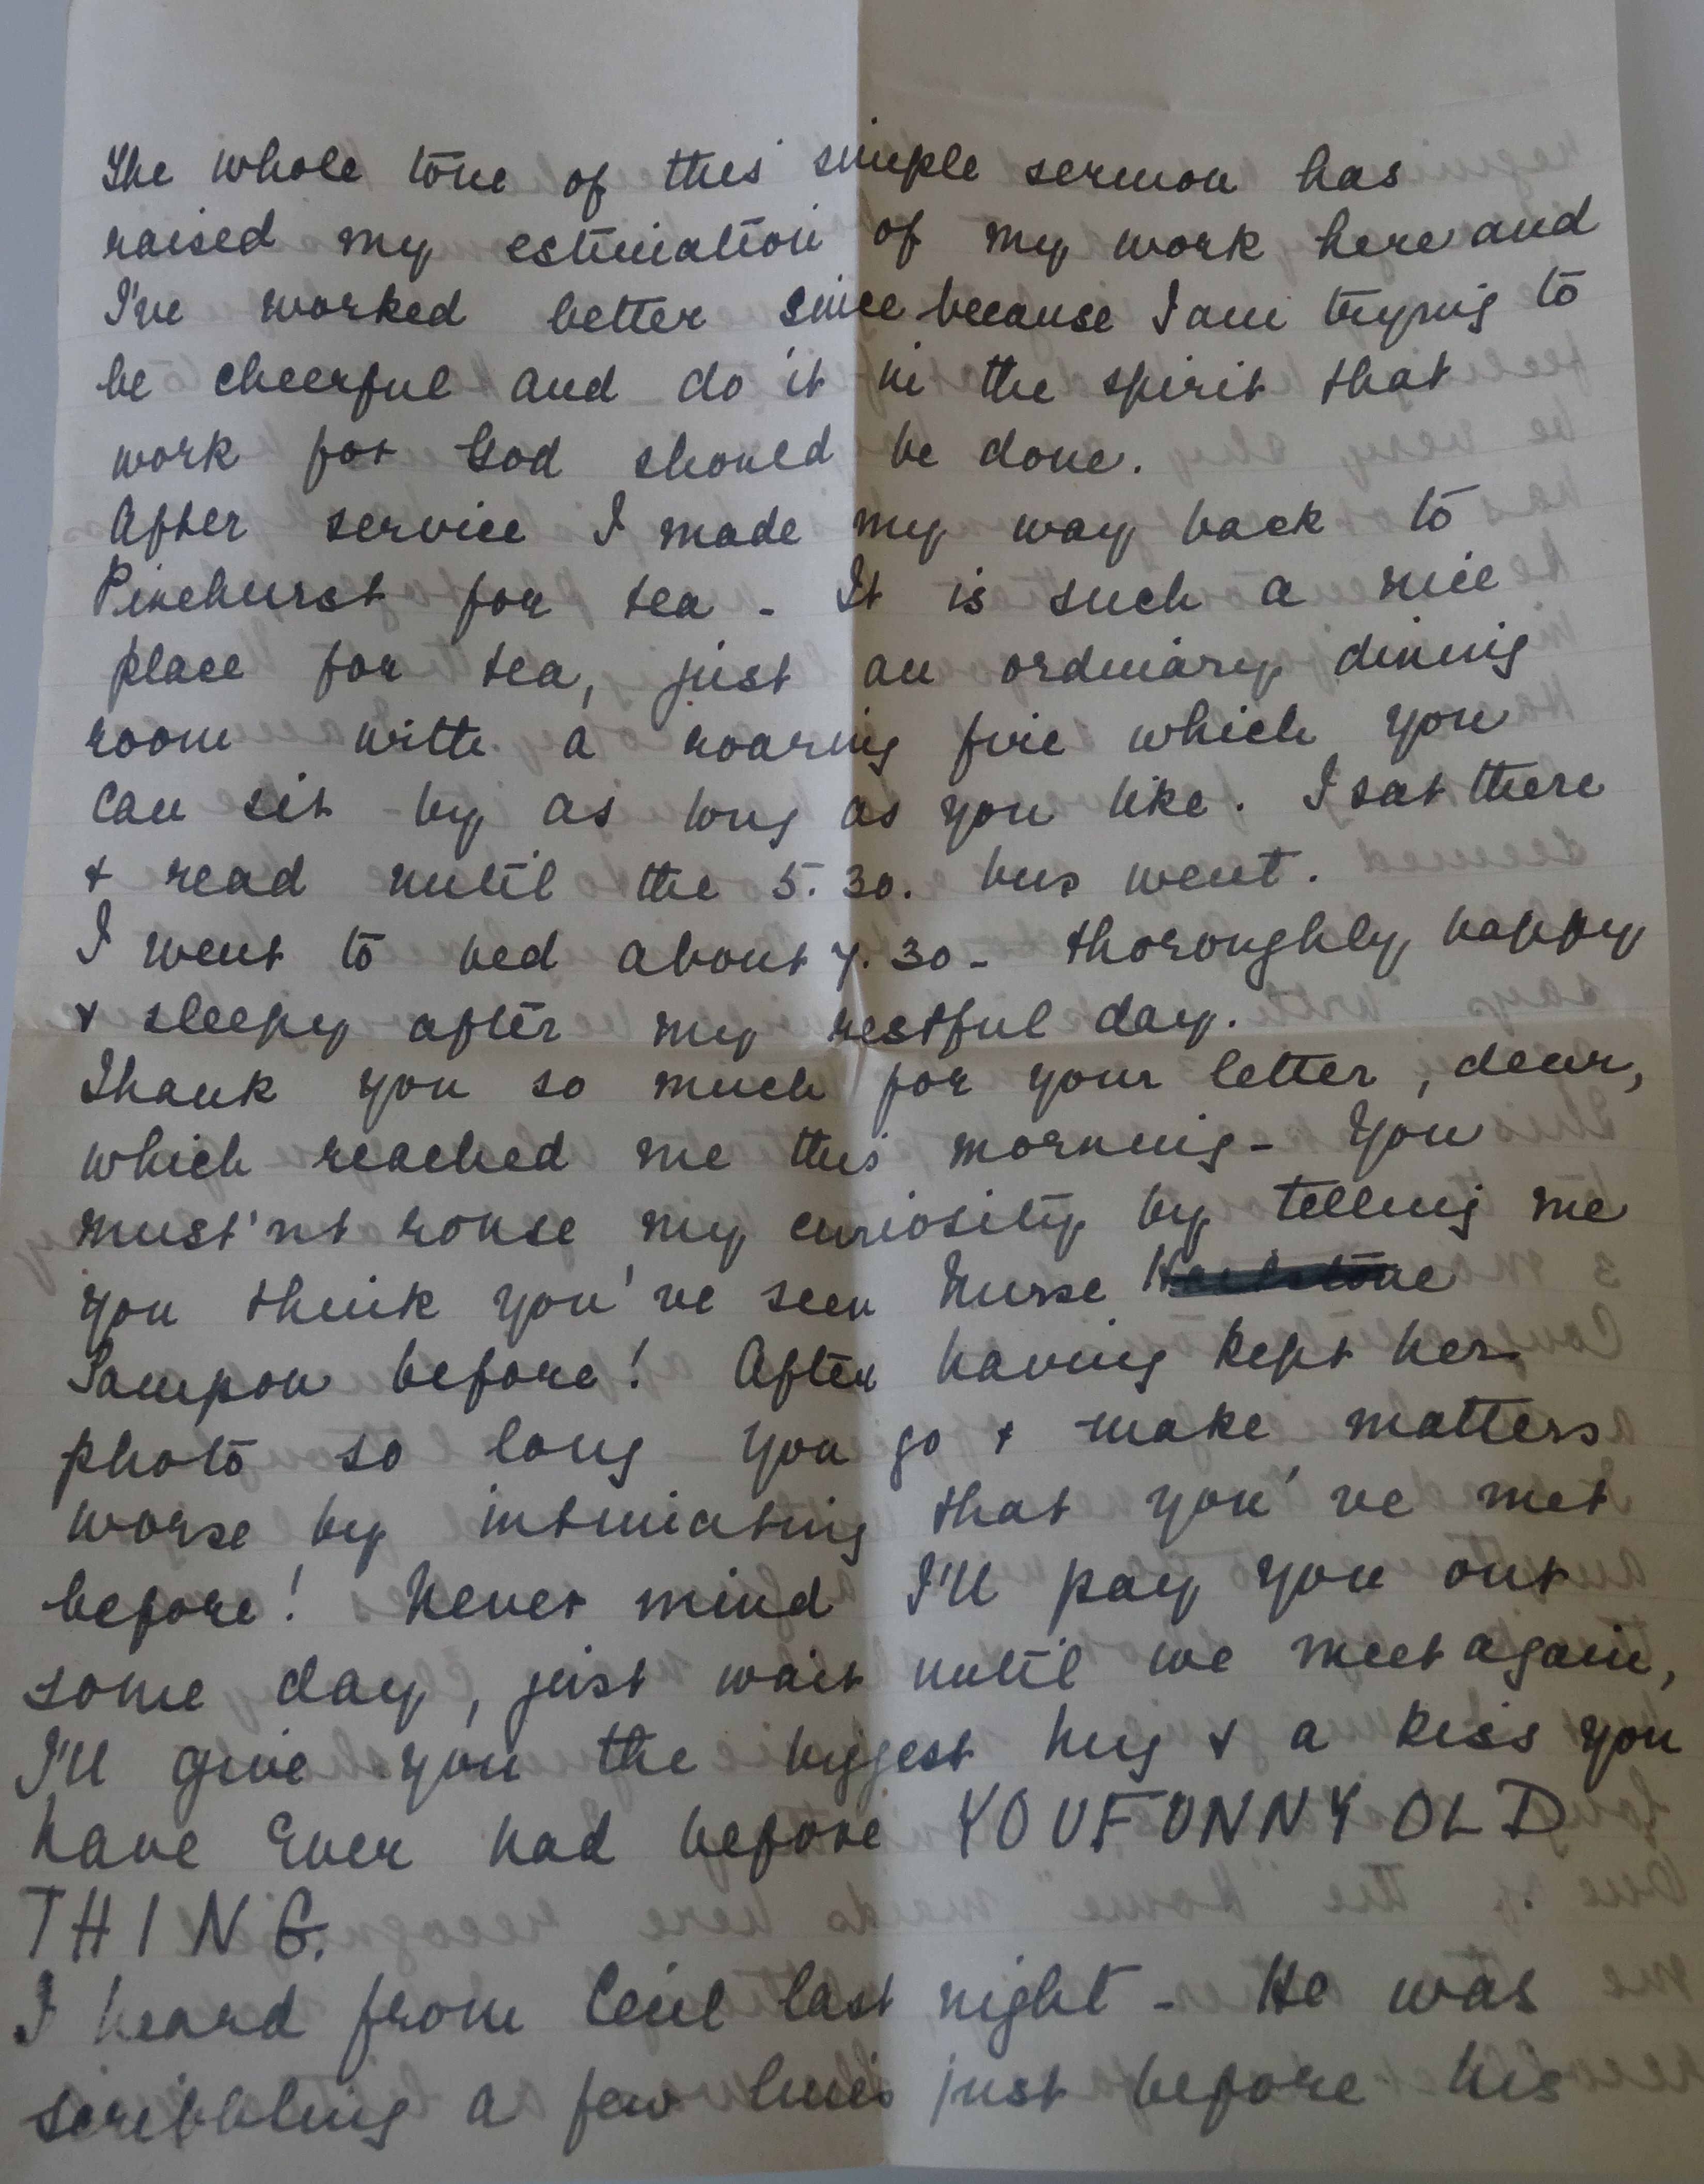 The whole tone of this simple sermon has
raised my estimation of my work here and
I've worked better since because I am trying to
be cheerful and do it in the spirit that
work for God should be done.
After service I made my way back to
Pinehurst for tea - It is such a nice
place for tea, just an ordinary dining
room with a roaring fire which you
can sit by as long as you like. I sat there
& read until the 5.30. bus went.
I went to bed about 7.30 - thoroughly happy
& sleepy after my restful day.
Thank you so much for your letter, dear,
which reached me this morning - You
must'nt rouse my curiosity by telling me
you think you've seen Nurse
Sampson before! After having kept her
photo so long you go & make matters
worse by intimiating that you've met
before! Never mind I'll pay you out
some day, just wait until we meet again,
I'll give you the biggest hug & a kiss you
have ever had before YOU FUNNY OLD
THING.
I heard from Cecil last night - He was
scribbling a few lines just before his